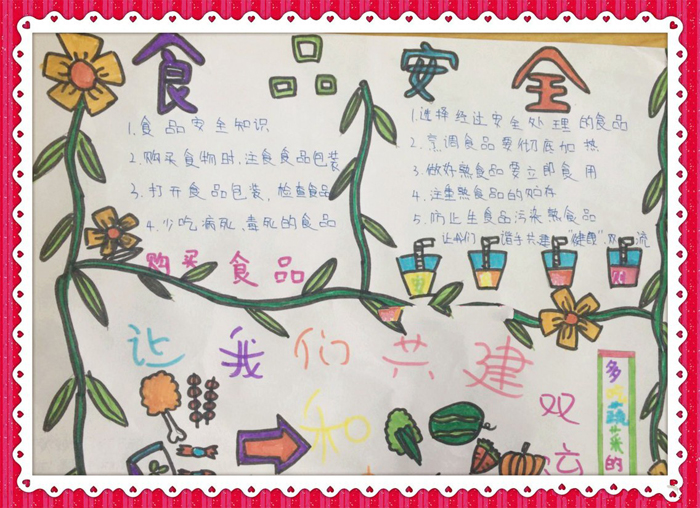 食品安全
1.食品安全知识
2.购买食物时,注食食品包装
3.打开食品包装,检查食品
4.少吃病死、毒死的食品
购买食品
1.选择经过安全处理的食品
2.烹调食品要彻底加热
3.做好熟食品要立即食用
4.注重熟食品的贮存
5.防止生食品污染熟食品
让我们 谐手共建 “健 流
让我们共建
和
双
多吃蔬菜的